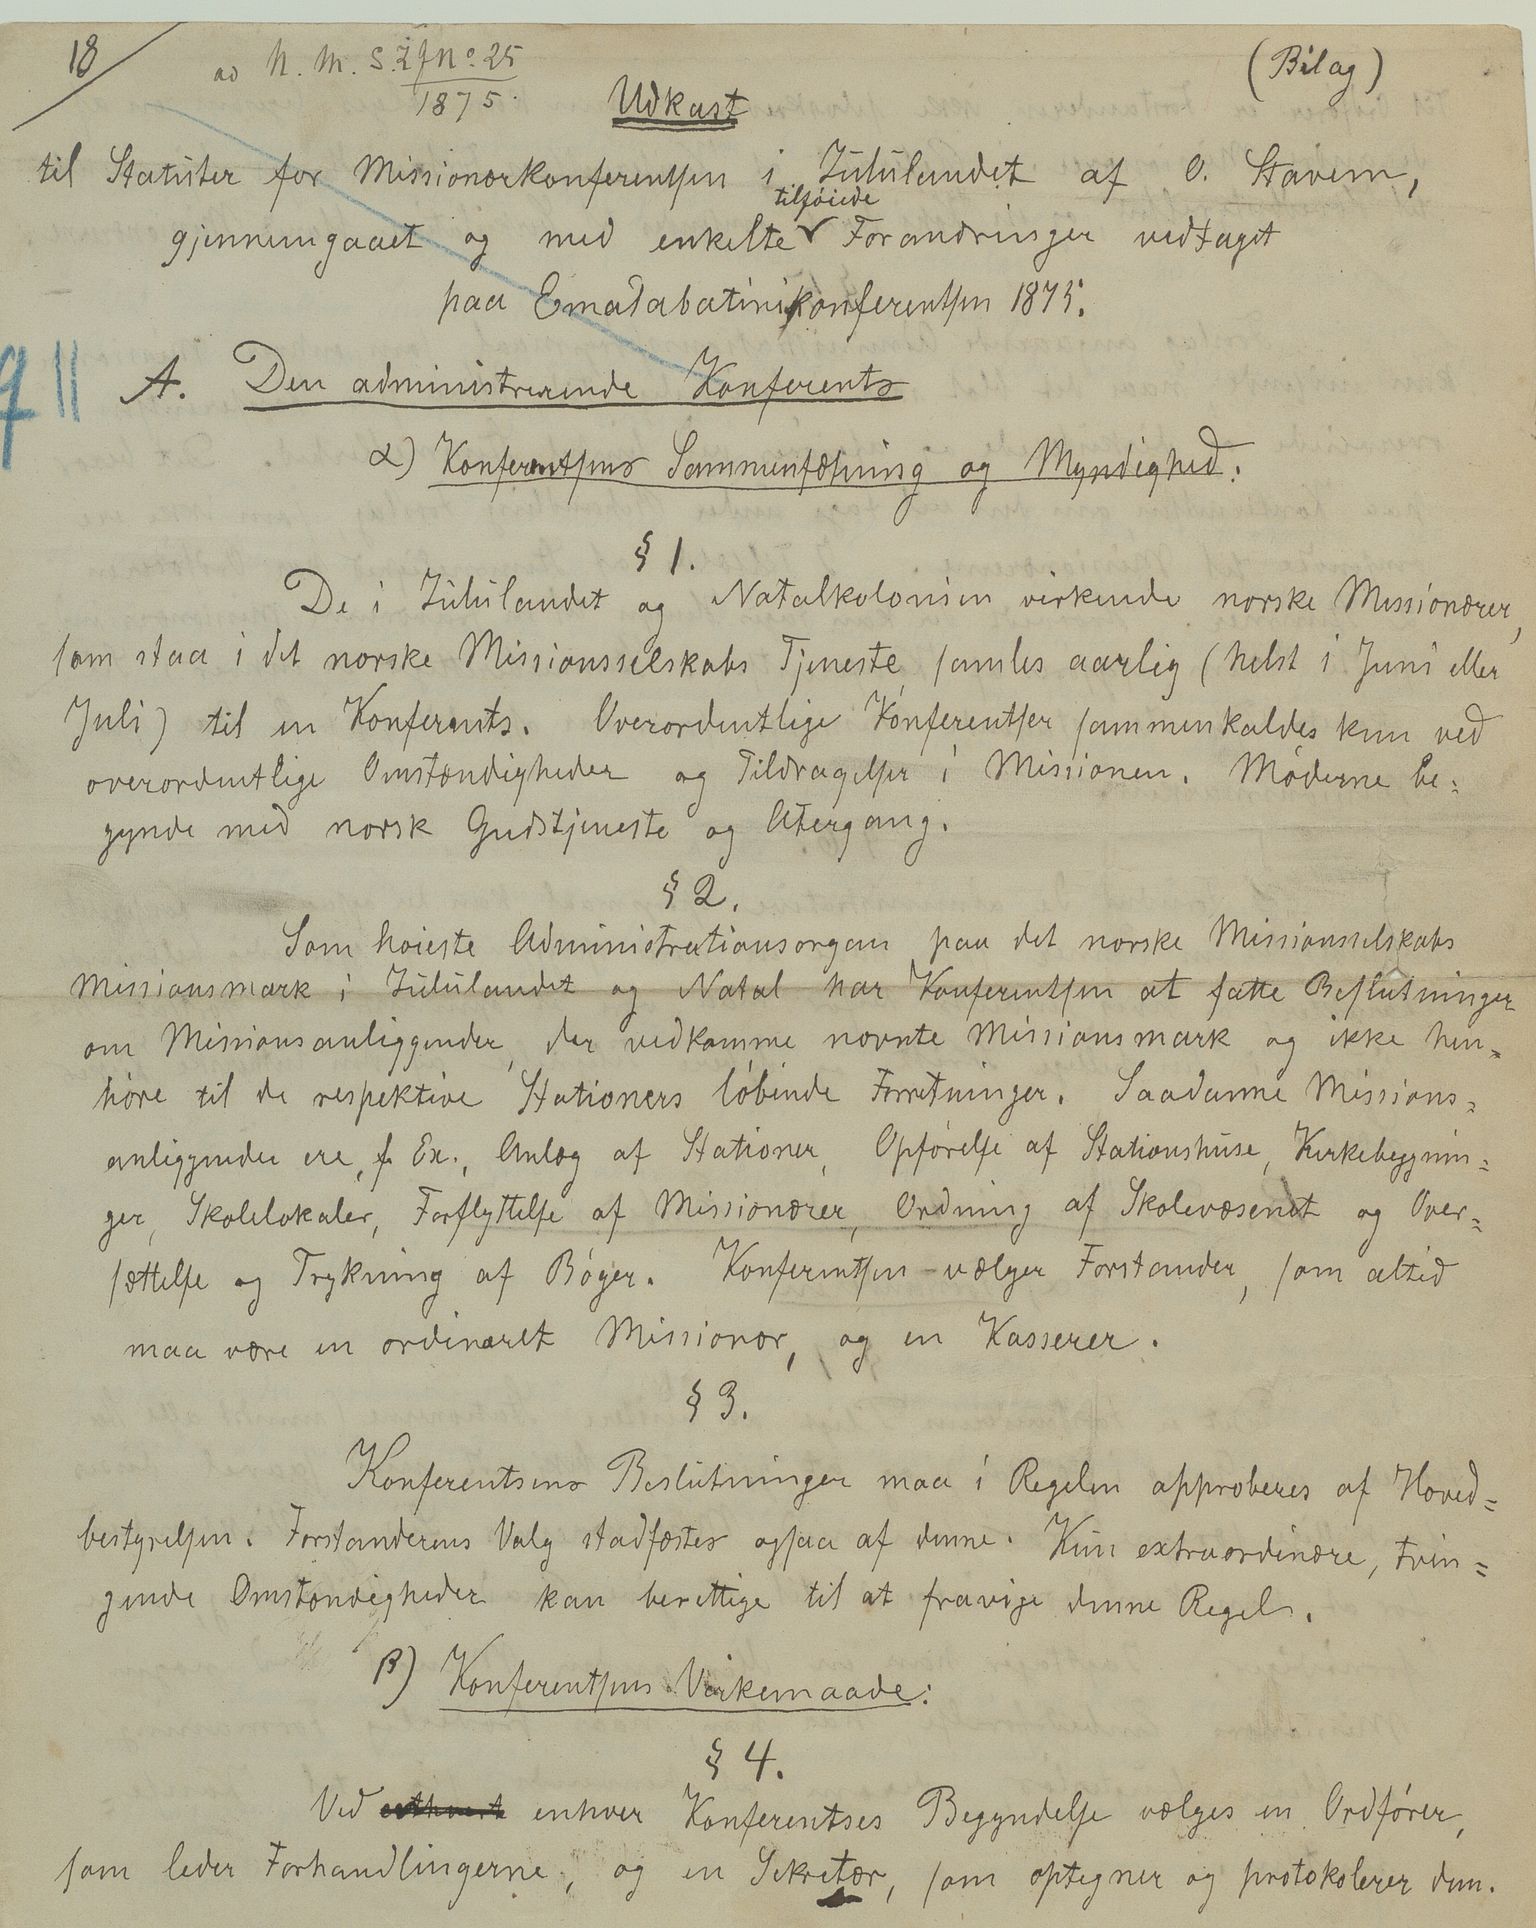 18
ad N. M. S. Z J No. 25
1875.
(Bilag)
Udkast
til Statuter for Missionærkonferentsen i Zululandet af O. Stavem,
gjennemgaaet og med enkelte tilføiede Forandringer vedtaget
paa Ematabatinikonferentsen 1875.
A. Den administrerende Konferents
α) Konferentsens Sammensætning og Myndighed:
§ 1.
De i Zululandet og Natalkolonien virkende norske Missionærer,
som staa i det norske Missionsselskabs Tjeneste samles aarlig (helst i Juni eller
Juli) til en Konferents. Overordentlige Konferentser sammenkaldes kun ved
overordentlige Omstændigheder og Tildragelser i Missionen. Møderne be=
gynde med norsk Gudstjeneste og Altergang.
§ 2.
Som høieste Administrationsorgan paa det norske Missionsselskabs
Missionsmark i Zululandet og Natal har Konferentsen at fatte Beslutninger
om Missionsanliggender, der vedkomme nævnte Missionsmark og ikke hen=
høre til de respektive Stationers løbende Forretninger. Saadanne Missions=
anliggender ere, f. Ex., Anlæg af Stationer, Opførelse af Stationshuse, Kirkebygnin=
ger, Skolelokaler, Forflyttelse af Missionærer, Ordning af Skolevæsenet og Over=
sættelse og Trykning af Bøger. Konferentsen vælger Forstander, som altid
maa være en ordineret Missionær, og en Kasserer.
§ 3.
Konferentsens Beslutninger maa i Regelen approberes af Hoved=
bestyrelsen. Forstanderens Valg stadfæstes ogsaa af denne. Kun extraordinære, tvin=
gende Omstændigheder kan berettige til at fravige denne Regel.
β) Konferentsens Virkemaade:
§ 4.
Ved enhver Konferentses Begyndelse vælges en Ordfører,
som leder Forhandlingerne, og en Sekretær, som optegner og protokolerer dem.